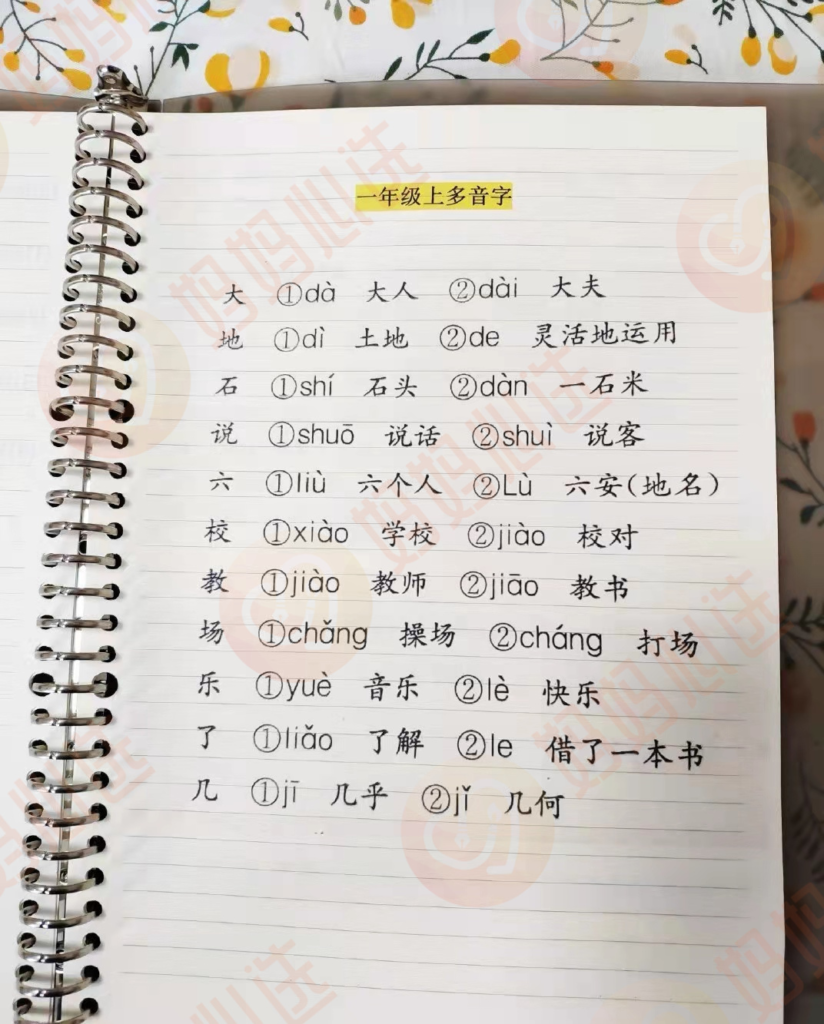 一年级上多音字
大 ①dà 大人 ②dài 大夫
地 ①dì 土地 ②de 灵活地运用
石 ①shí 石头 ②dàn 一石米
说 ①shuō 说话 ②shuì 说客
六 ①liù 六个人 ②Lù 六安(地名)
校 ①xiào 学校 ②jiào 校对
教 ①jiào 教师 ②jiāo 教书
场 ①chǎng 操场 ②cháng 打场
乐 ①yuè 音乐 ②lè 快乐
了 ①liǎo 了解 ②le 借了一本书
几 ①jī 几乎 ②jǐ 几何
妈妈心选
妈妈心选
妈妈心选
妈妈心选